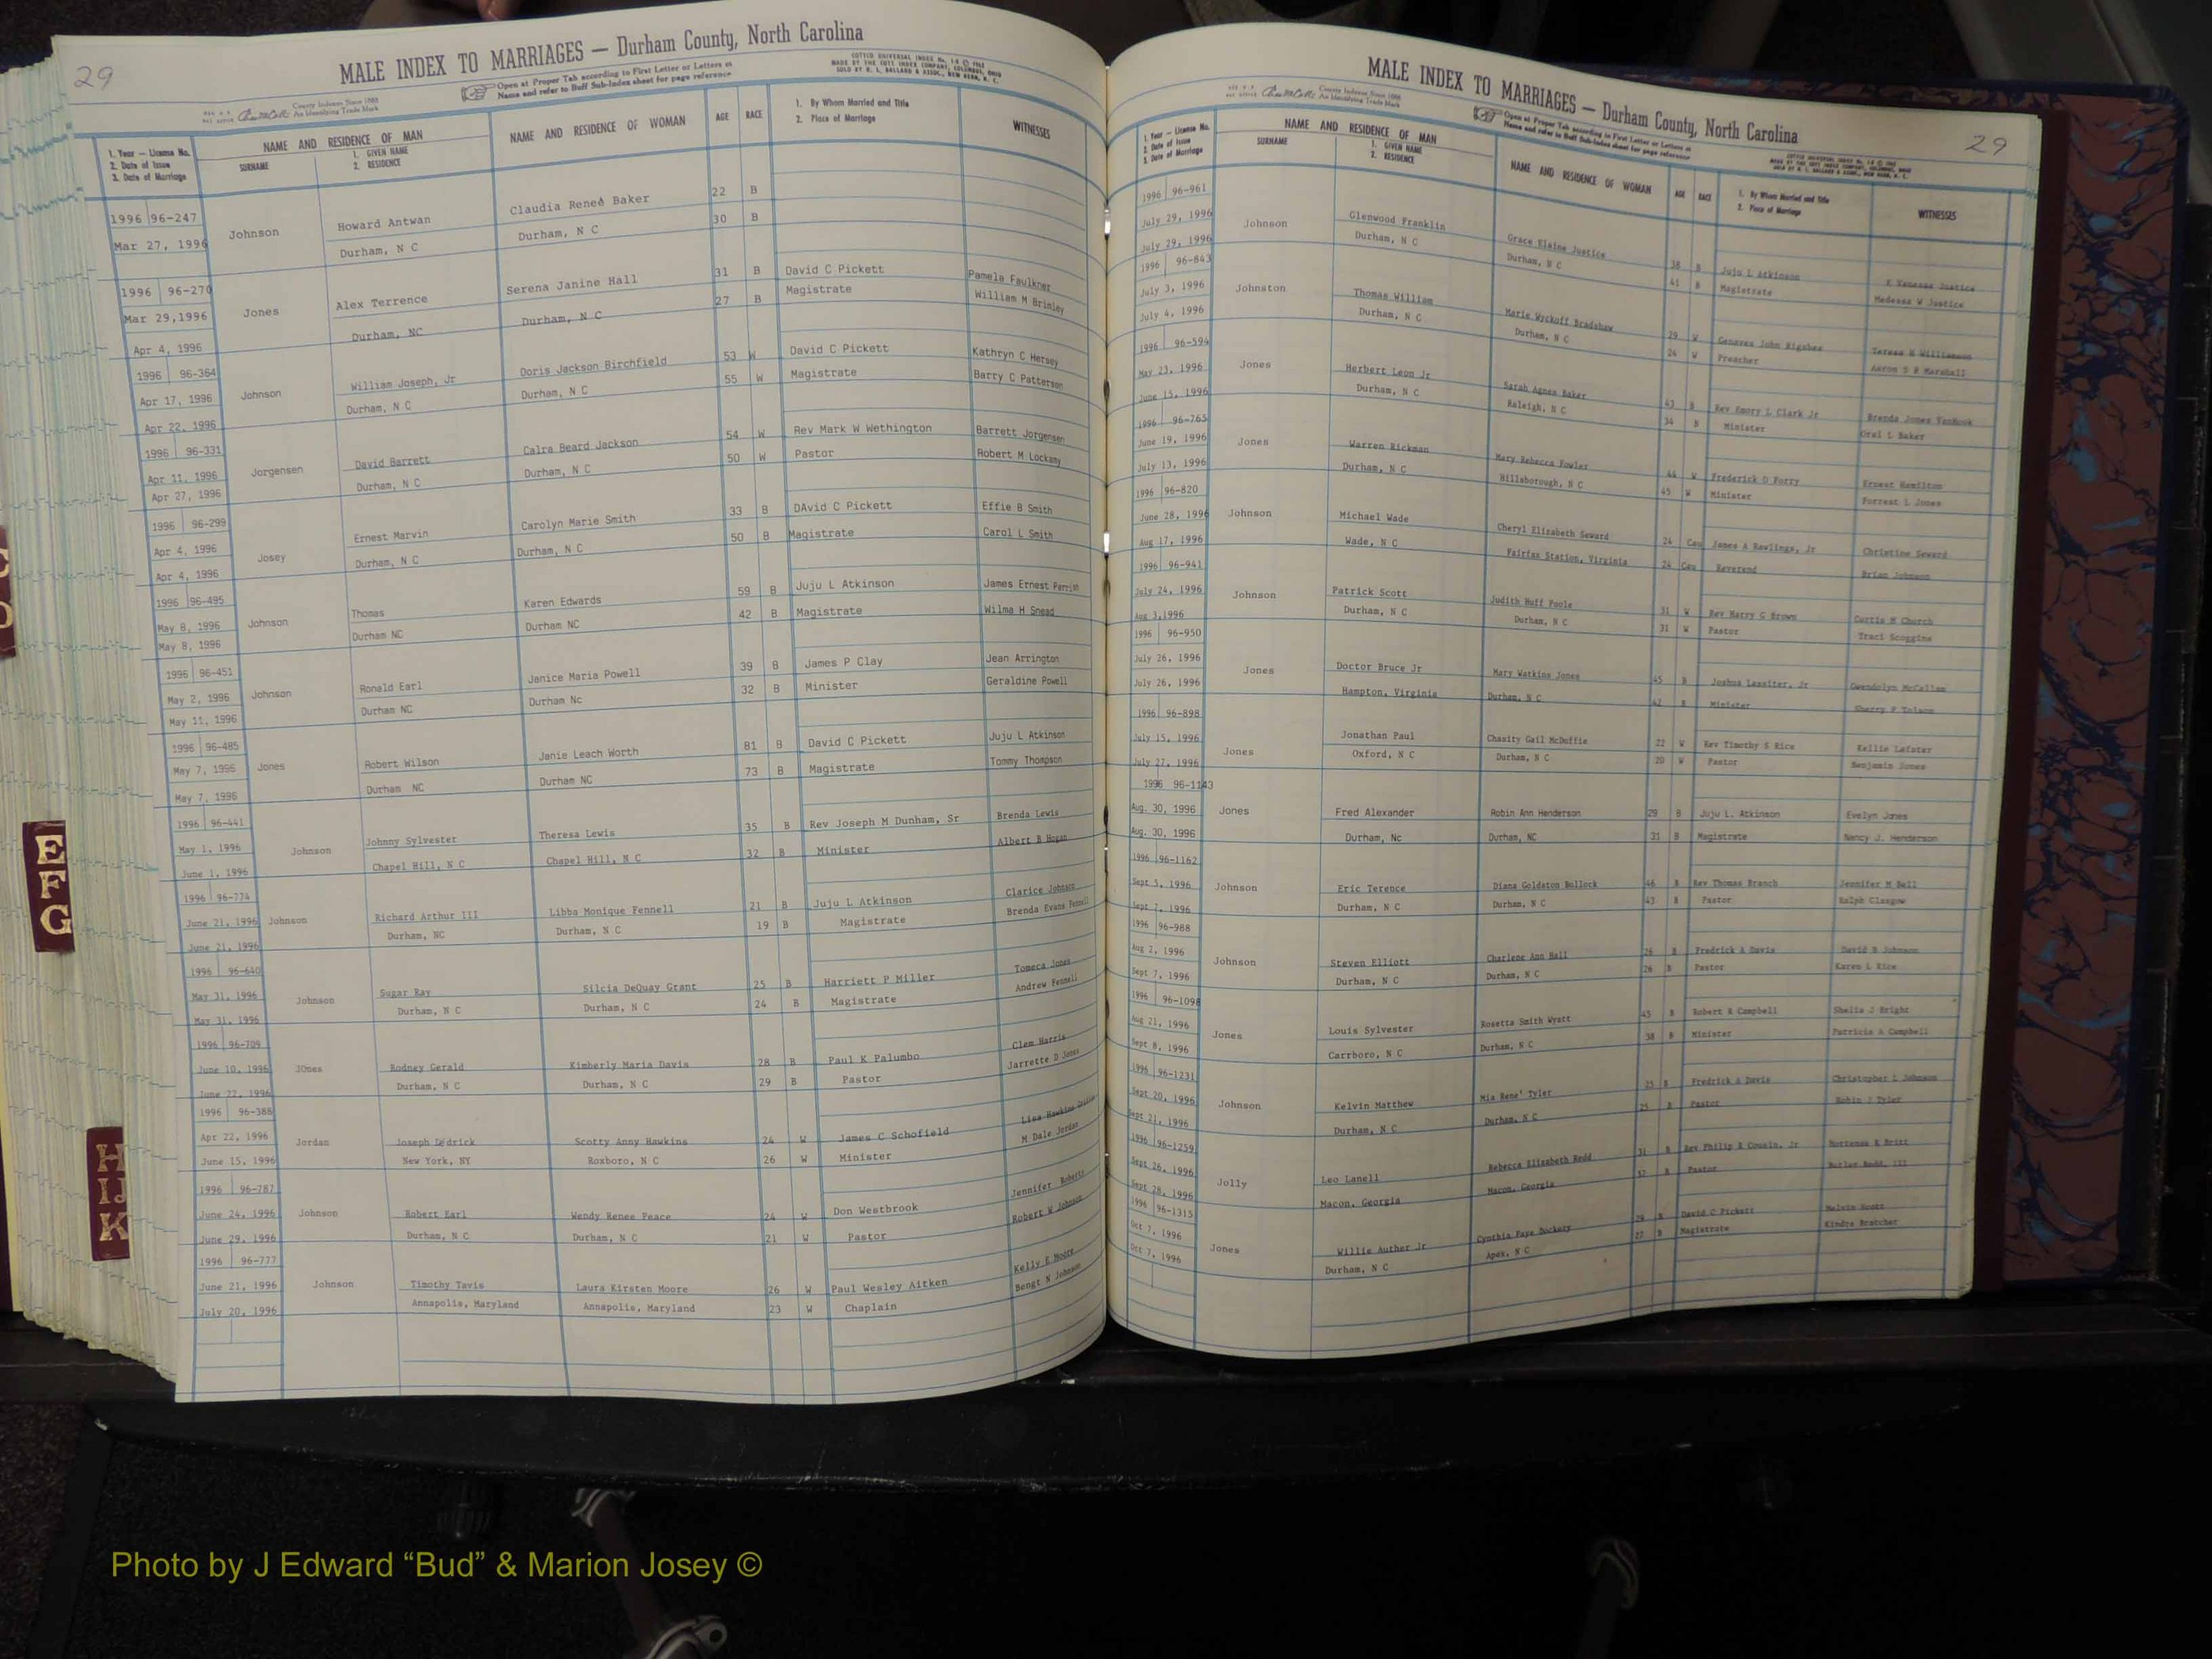 29
MALE INDEX TO MARRIAGES — Durham County, North Carolina
Open at Proper Tab according to First Letter or Letters of
Name and refer to Buff Sub-Index sheet for page reference
County Indexes Since 1888
An Identifying Trade Mark
COTTCO UNIVERSAL INDEX
MADE BY THE COTT INDEX COMPANY, COLUMBUS, OHIO
SOLD BY R. L. BALLARD & ASSOC., NEW BERN, N. C.
1. Year — License No.
2. Date of Issue
3. Date of Marriage
NAME AND RESIDENCE OF MAN
SURNAME
1. GIVEN NAME
2. RESIDENCE
NAME AND RESIDENCE OF WOMAN
AGE
RACE
1. By Whom Married and Title
2. Place of Marriage
WITNESSES
1996 96-247 Johnson Howard Antwan Claudia Reneé Baker 22 B
Mar 27, 1996 Durham, N C Durham, N C 30 B
1996 96-270 Jones Alex Terrence Serena Janine Hall 31 B David C Pickett Pamela Faulkner
Mar 29,1996 Durham, NC Durham, N C 27 B Magistrate William M Brinley
Apr 4, 1996
1996 96-364 Johnson William Joseph, Jr Doris Jackson Birchfield 53 W David C Pickett Kathryn C Hersey
Apr 17, 1996 Durham, N C Durham, N C 55 W Magistrate Barry C Patterson
Apr 22, 1996
1996 96-331 Jorgensen David Barrett Calra Beard Jackson 54 W Rev Mark W Wethington Barrett Jorgensen
Apr 11, 1996 Durham, N C Durham, N C 50 W Pastor Robert M Lockamy
Apr 27, 1996
1996 96-299 Josey Ernest Marvin Carolyn Marie Smith 33 B DAvid C Pickett Effie B Smith
Apr 4, 1996 Durham, N C Durham, N C 50 B Magistrate Carol L Smith
Apr 4, 1996
1996 96-495 Johnson Thomas Karen Edwards 59 B Juju L Atkinson James Ernest Parrish
May 8, 1996 Durham NC Durham NC 42 B Magistrate Wilma H Snead
May 8, 1996
1996 96-451 Johnson Ronald Earl Janice Maria Powell 39 B James P Clay Jean Arrington
May 2, 1996 Durham NC Durham Nc 32 B Minister Geraldine Powell
May 11, 1996
1996 96-485 Jones Robert Wilson Janie Leach Worth 81 B David C Pickett Juju L Atkinson
May 7, 1996 Durham NC Durham NC 73 B Magistrate Tommy Thompson
May 7, 1996
1996 96-441 Johnson Johnny Sylvester Theresa Lewis 35 B Rev Joseph M Dunham, Sr Brenda Lewis
May 1, 1996 Chapel Hill, N C Chapel Hill, N C 32 B Minister Albert B Hogan
June 1, 1996
1996 96-774 Johnson Richard Arthur III Libba Monique Fennell 21 B Juju L Atkinson Clarice Johnson
June 21, 1996 Durham, NC Durham, N C 19 B Magistrate Brenda Evans Fennell
June 21, 1996
1996 96-640 Johnson Sugar Ray Silcia DeQuay Grant 25 B Harriett P Miller Tomeca Jones
May 31, 1996 Durham, N C Durham, N C 24 B Magistrate Andrew Fennell
May 31, 1996
1996 96-709 JOnes Rodney Gerald Kimberly Maria Davis 28 B Paul K Palumbo Clem Harris
June 10, 1996 Durham, N C Durham, N C 29 B Pastor Jarrette D Jones
June 22, 1996
1996 96-388 Jordan Joseph Dedrick Scotty Anny Hawkins 24 W James C Schofield Lisa Hawkins
Apr 22, 1996 New York, NY Roxboro, N C 26 W Minister M Dale Jordan
June 15, 1996
1996 96-787 Johnson Robert Earl Wendy Renee Peace 24 W Don Westbrook Jennifer Roberts
June 24, 1996 Durham, N C Durham, N C 21 W Pastor Robert W Johnson
June 29, 1996
1996 96-777 Johnson Timothy Tavis Laura Kirsten Moore 26 W Paul Wesley Aitken Kelly E Moore
June 21, 1996 Annapolis, Maryland Annapolis, Maryland 23 W Chaplain Bengt N Johnson
July 20, 1996
E
F
G
H
IJ
K
29
MALE INDEX TO MARRIAGES — Durham County, North Carolina
Open at Proper Tab according to First Letter or Letters of
Name and refer to Buff Sub-Index sheet for page reference
County Indexes Since 1888
An Identifying Trade Mark
1. Year — License No.
2. Date of Issue
3. Date of Marriage
NAME AND RESIDENCE OF MAN
SURNAME
1. GIVEN NAME
2. RESIDENCE
NAME AND RESIDENCE OF WOMAN
AGE
RACE
1. By Whom Married and Title
2. Place of Marriage
WITNESSES
1996 96-961 Johnson Glenwood Franklin Grace Elaine Justice 38 B Juju L Atkinson K Vanessa Justice
July 29, 1996 Durham, N C Durham, N C 41 B Magistrate Medessa W Justice
July 29, 1996
1996 96-843 Johnston Thomas William Marie Wyckoff Bradshaw 29 W Geneves John Rigsbee Teresa H Williamson
July 3, 1996 Durham, N C Durham, N C 24 W Preacher Aaron D P Marshall
July 4, 1996
1996 96-594 Jones Herbert Leon Jr Sarah Agnes Baker 43 B Rev Emory L Clark Jr Brenda Jones VanHook
May 23, 1996 Durham, N C Raleigh, N C 34 B Minister Oral L Baker
June 15, 1996
1996 96-765 Jones Warren Rickman Mary Rebecca Fowler 44 W Frederick D Forry Ernest Hamilton
June 19, 1996 Durham, N C Hillsborough, N C 45 W Minister Forrest L Jones
July 13, 1996
1996 96-820 Johnson Michael Wade Cheryl Elizabeth Seward 24 Cau James A Rawlings, Jr Christine Seward
June 28, 1996 Wade, N C Fairfax Station, Virginia 24 Cau Reverend Brian Johnson
Aug 17, 1996
1996 96-941 Johnson Patrick Scott Judith Huff Poole 31 W Rev Harry G Brown Curtis M Church
July 24, 1996 Durham, N C Durham, N C 31 W Pastor Traci Scoggins
Aug 3,1996
1996 96-950 Jones Doctor Bruce Jr Mary Watkins Jones 45 B Joshua Lassiter, Jr Gwendolyn McCallum
July 26, 1996 Hampton, Virginia Durham, N C 42 B Minister Sherry P Tolson
July 26, 1996
1996 96-898 Jones Jonathan Paul Chasity Gail McDuffie 22 W Rev Timothy S Rice Kellie Lefater
July 15, 1996 Oxford, N C Durham, N C 20 W Pastor Benjamin Jones
July 27, 1996
1996 96-1143 Jones Fred Alexander Robin Ann Henderson 29 B Juju L. Atkinson Evelyn Jones
Aug. 30, 1996 Durham, Nc Durham, NC 31 B Magistrate Nancy J. Henderson
Aug. 30, 1996
1996 96-1162 Johnson Eric Terence Diana Goldston Bullock 46 B Rev Thomas Branch Jennifer M Bell
Sept 5, 1996 Durham, N C Durham, N C 43 B Pastor Ralph Glasgow
Sept 7, 1996
1996 96-988 Johnson Steven Elliott Charlene Ann Hall 26 B Fredrick A Davis David N Johnson
Aug 2, 1996 Durham, N C Durham, N C 26 B Pastor Karen L Rice
Sept 7, 1996
1996 96-1098 Jones Louis Sylvester Rosetta Smith Wyatt 43 B Robert R Campbell Shelia J Bright
Aug 21, 1996 Carrboro, N C Durham, N C 38 B Minister Patricia A Campbell
Sept 8, 1996
1996 96-1231 Johnson Kelvin Matthew Mia Rene' Tyler 25 B Fredrick A Davis Christopher L Johnson
Sept 20, 1996 Durham, N C Durham, N C 25 B Pastor Robin J Tyler
Sept 21, 1996
1996 96-1259 Jolly Leo Lanell Rebecca Elizabeth Redd 31 B Rev Philip R Cousin, Jr Hortense E Britt
Sept 26, 1996 Macon, Georgia Macon, Georgia 32 B Pastor Butler Redd, III
Sept 28, 1996
1996 96-1315 Jones Willie Auther Jr Cynthia Faye Dockery 29 B David C Pickett Melvin Scott
Oct 7, 1996 Durham, N C Apex, N C 27 B Magistrate Kindra Bratcher
Oct 7, 1996
Photo by J Edward “Bud” & Marion Josey ©